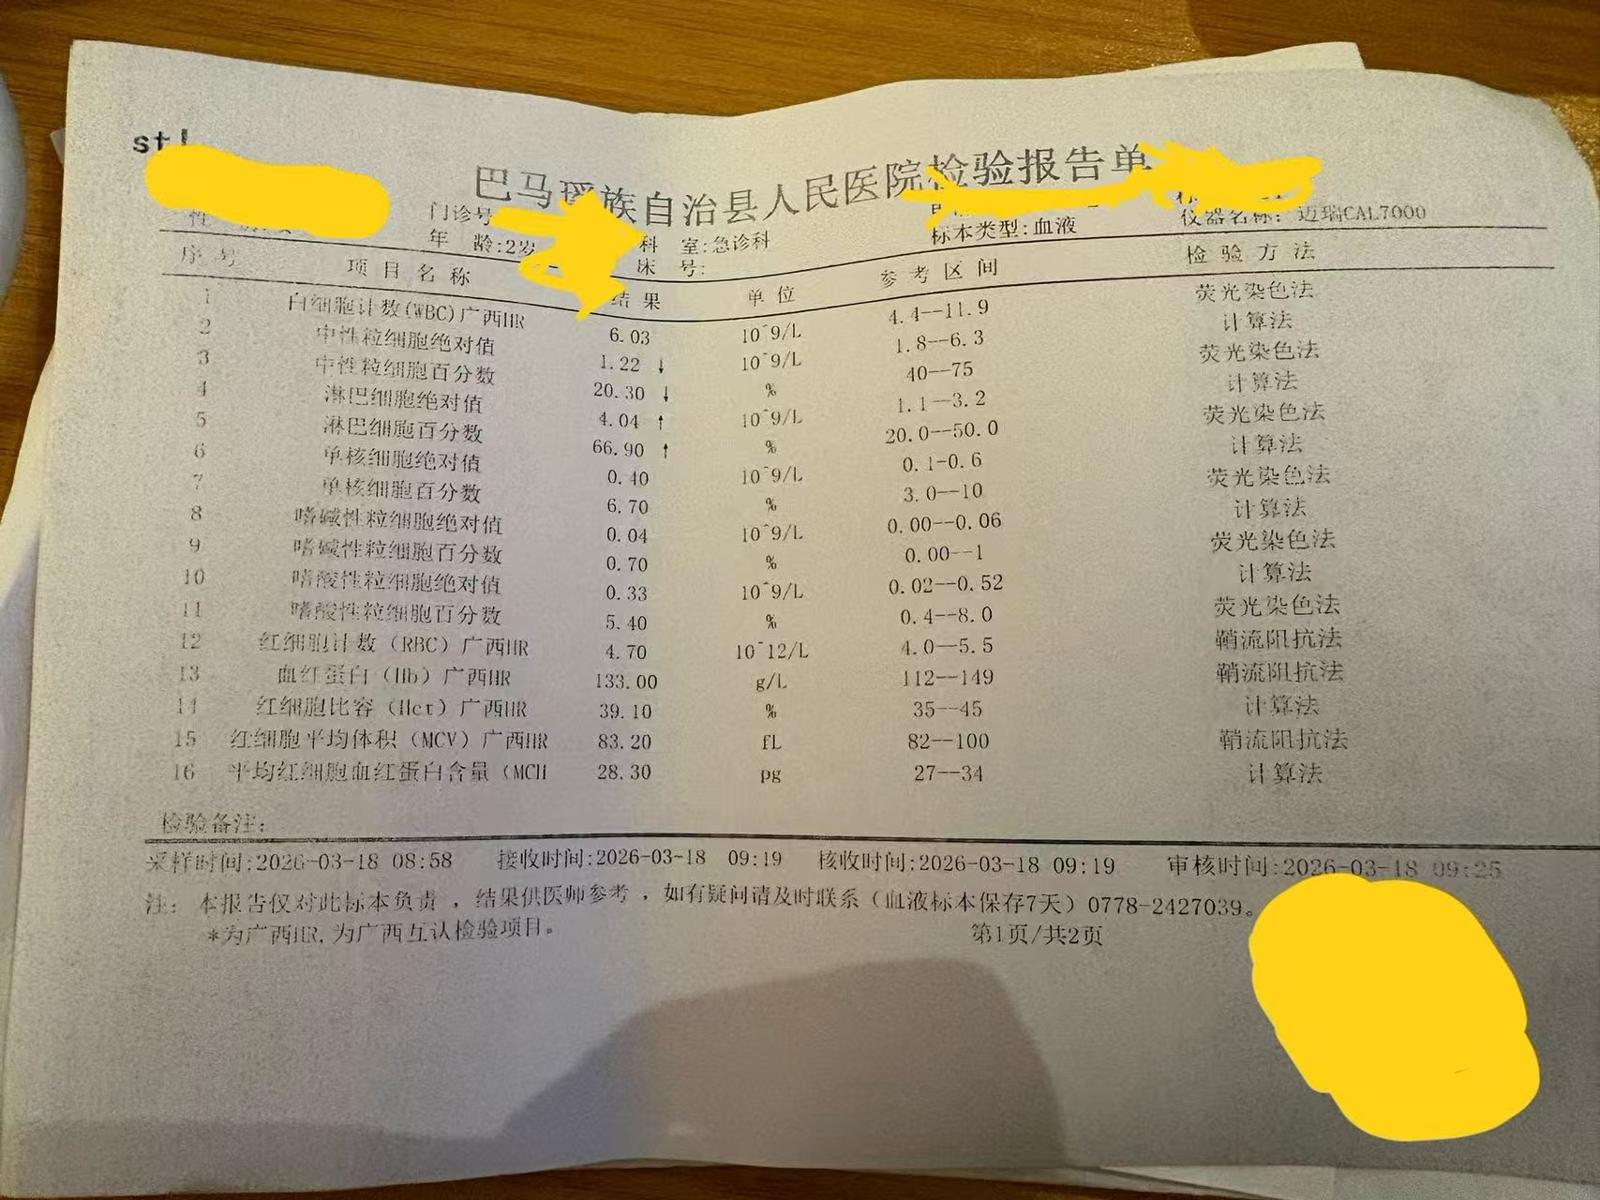 stl
巴马瑶族自治县人民医院检验报告单
门诊号
年 龄:2岁 科 室:急诊科 标本类型:血液 仪器名称: 迈瑞CAL7000
床 号:
序 号 项 目 名 称 结 果 单 位 参 考 区 间 检 验 方 法
1 白细胞计数(WBC)广西HR 6.03 10^9/L 4.4--11.9 荧光染色法
2 中性粒细胞绝对值 1.22 ↓ 10^9/L 1.8--6.3 计算法
3 中性粒细胞百分数 20.30 ↓ % 40--75 荧光染色法
4 淋巴细胞绝对值 4.04 ↑ 10^9/L 1.1--3.2 计算法
5 淋巴细胞百分数 66.90 ↑ % 20.0--50.0 荧光染色法
6 单核细胞绝对值 0.40 10^9/L 0.1-0.6 计算法
7 单核细胞百分数 6.70 % 3.0--10 荧光染色法
8 嗜碱性粒细胞绝对值 0.04 10^9/L 0.00--0.06 计算法
9 嗜碱性粒细胞百分数 0.70 % 0.00--1 荧光染色法
10 嗜酸性粒细胞绝对值 0.33 10^9/L 0.02--0.52 计算法
11 嗜酸性粒细胞百分数 5.40 % 0.4--8.0 荧光染色法
12 红细胞计数（RBC）广西HR 4.70 10^12/L 4.0--5.5 鞘流阻抗法
13 血红蛋白（Hb）广西HR 133.00 g/L 112--149 鞘流阻抗法
14 红细胞比容（Hct）广西HR 39.10 % 35--45 计算法
15 红细胞平均体积（MCV）广西HR 83.20 fL 82--100 鞘流阻抗法
16 平均红细胞血红蛋白含量（MCH 28.30 pg 27--34 计算法
检验备注:
采样时间:2026-03-18 08:58 接收时间:2026-03-18 09:19 核收时间:2026-03-18 09:19 审核时间:2026-03-18 09:25
注: 本报告仅对此标本负责，结果供医师参考，如有疑问请及时联系（血液标本保存7天）0778-2427039。
*为广西HR,为广西互认检验项目。 第1页/共2页